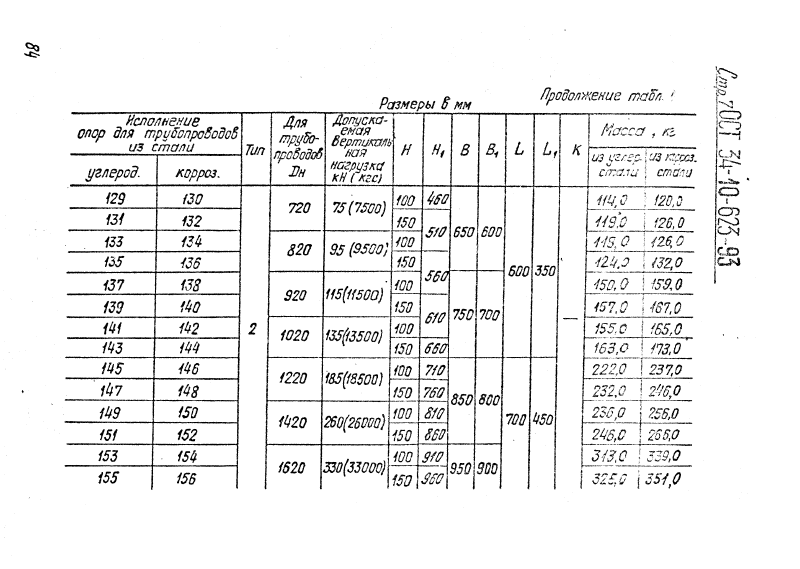 84
Стр. 7 ОСТ 34-10-623-93
Размеры в мм
Продолжение табл. 1
Исполнение опор для трубопроводов из стали | Тип | Для трубопроводов Dн | Допускаемая вертикальная нагрузка кН (кгс) | H | H₁ | B | B₁ | L | L₁ | K | Масса, кг
углерод. | корроз. | из углер. стали | из корроз. стали
129 130 2 720 75 (7500) 100 460 650 600 600 350 — 114,0 120,0
131 132 150 510 119,0 126,0
133 134 820 95 (9500) 100 115,0 126,0
135 136 150 560 124,0 132,0
137 138 920 115 (11500) 100 750 700 150,0 159,0
139 140 150 610 157,0 167,0
141 142 1020 135 (13500) 100 155,0 165,0
143 144 150 660 163,0 173,0
145 146 1220 185 (18500) 100 710 850 800 700 450 222,0 237,0
147 148 150 760 232,0 246,0
149 150 1420 260 (26000) 100 810 236,0 256,0
151 152 150 860 246,0 266,0
153 154 1620 330 (33000) 100 910 950 900 313,0 339,0
155 156 150 960 325,0 351,0